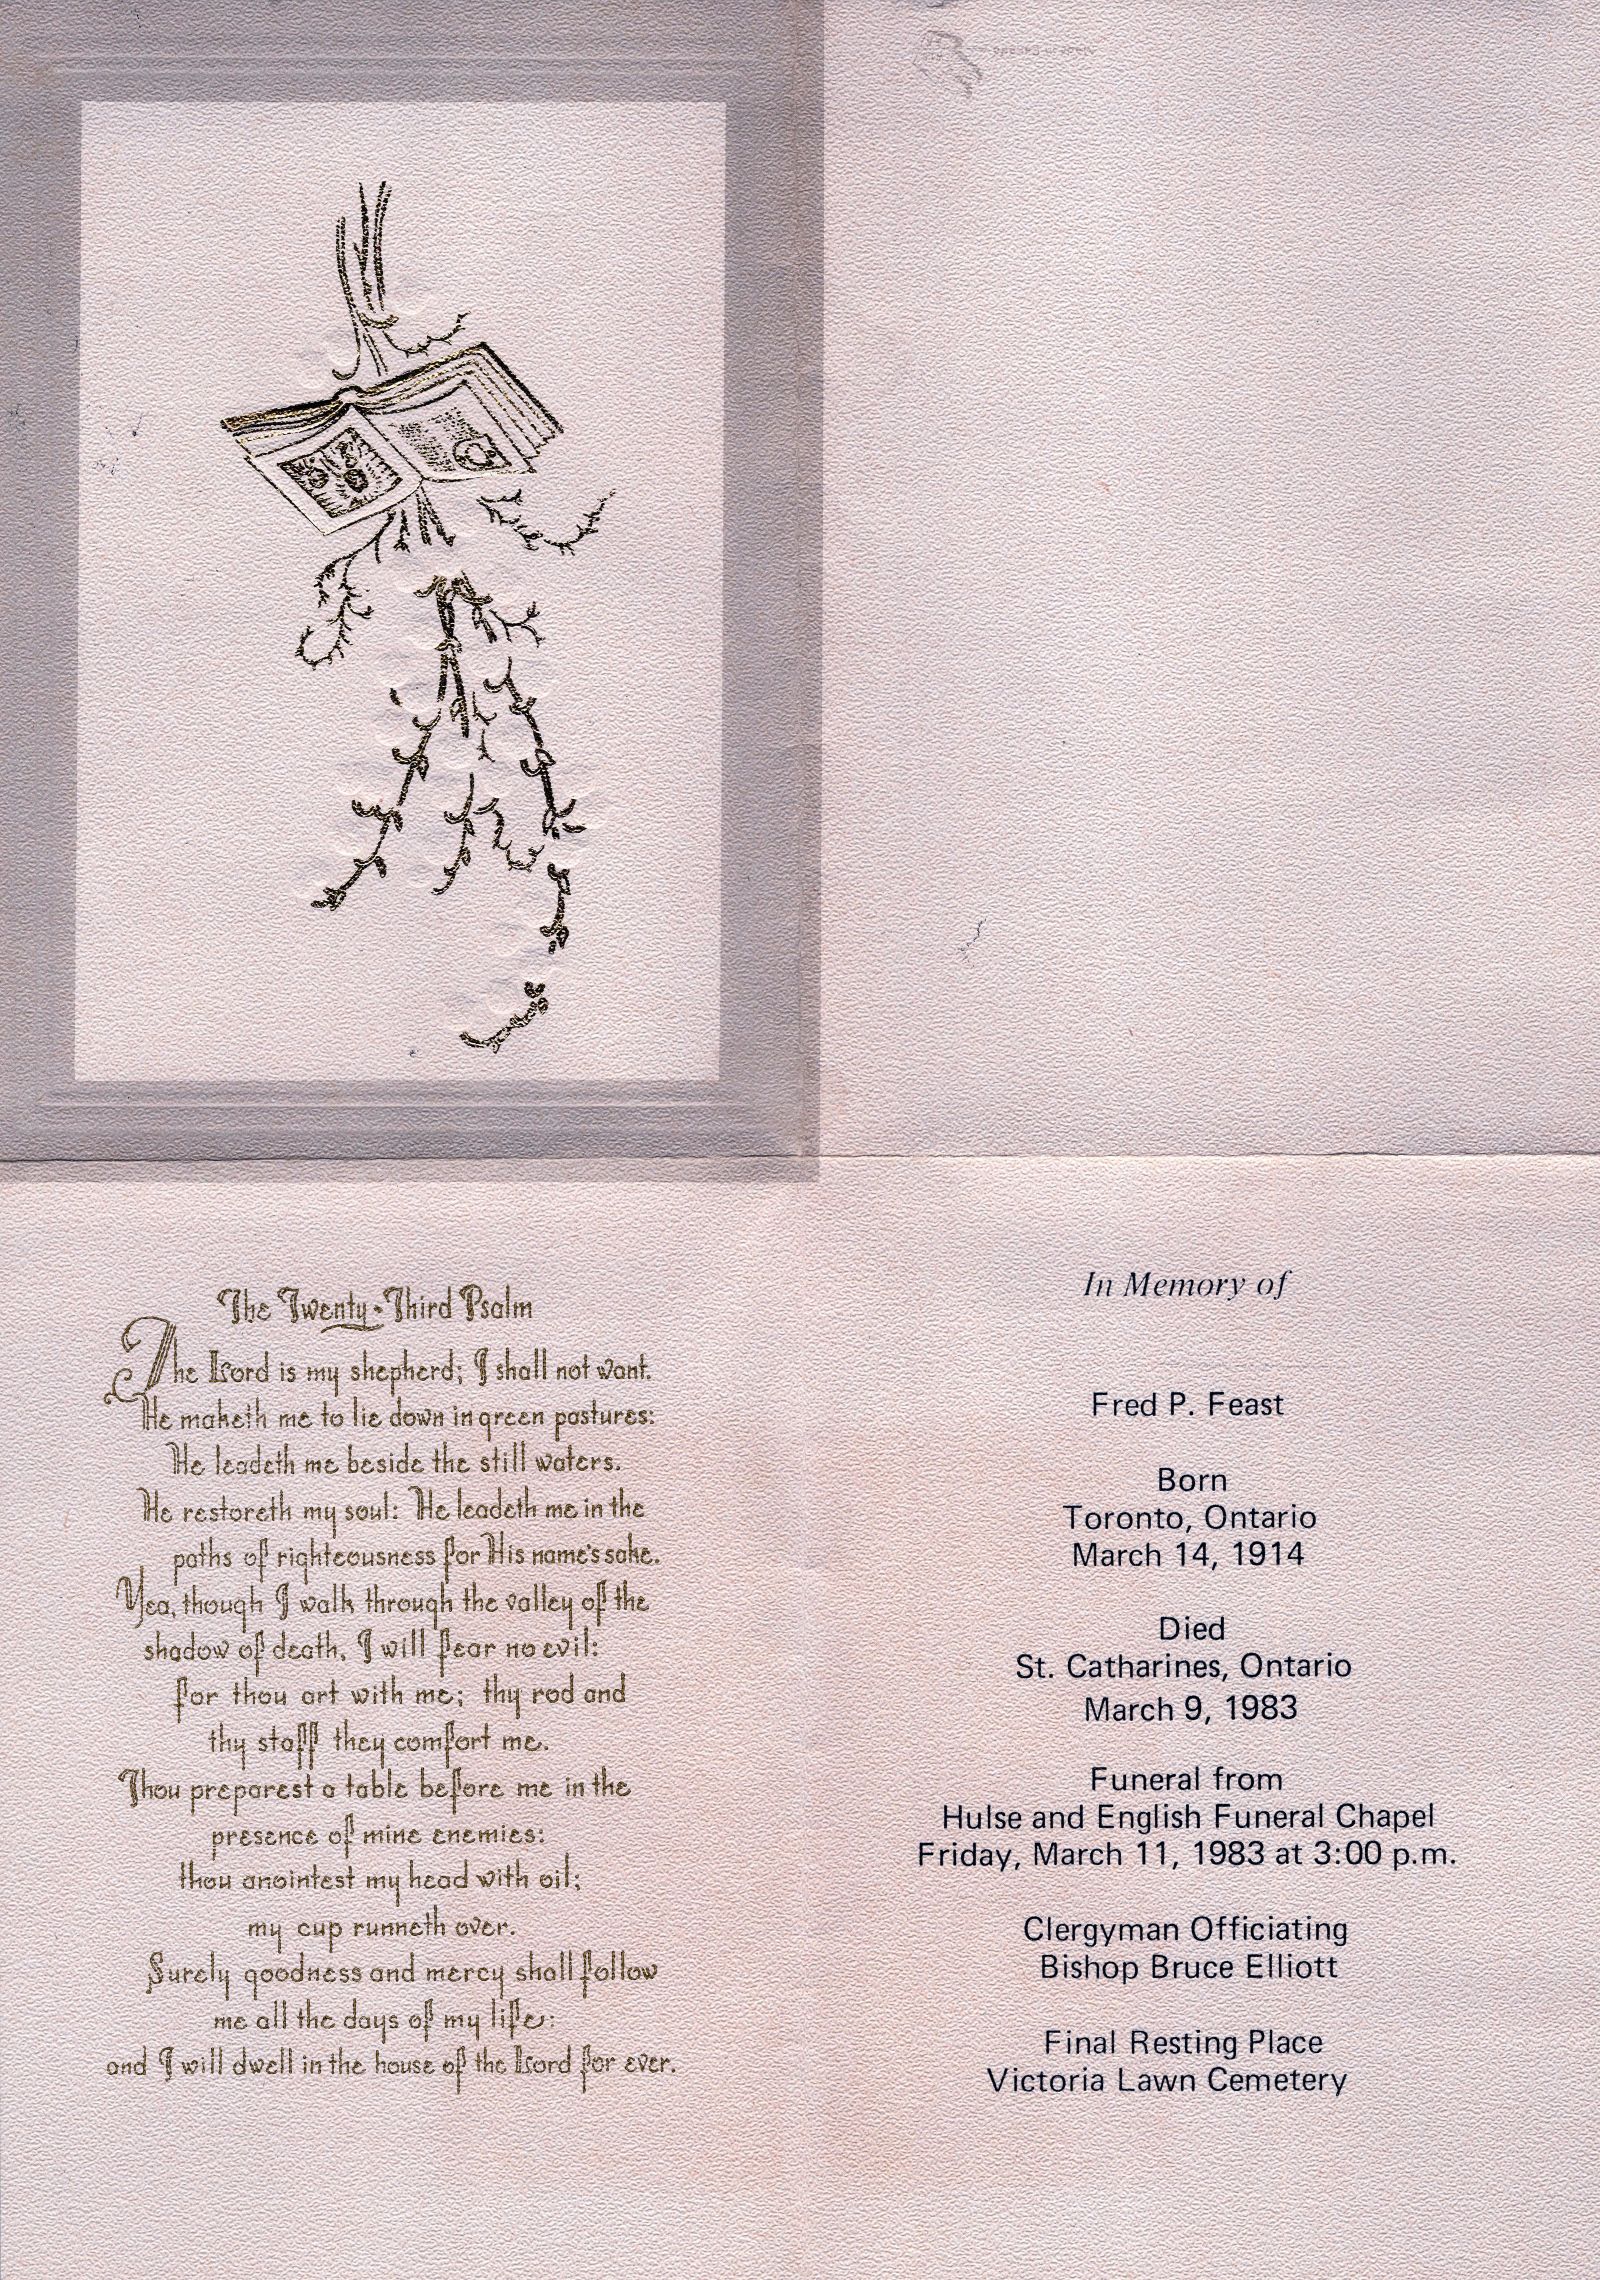 The Twenty-Third Psalm
The Lord is my shepherd; I shall not want.
He maketh me to lie down in green pastures:
He leadeth me beside the still waters.
He restoreth my soul: He leadeth me in the
paths of righteousness for His name's sake.
Yea, though I walk through the valley of the
shadow of death, I will fear no evil:
for thou art with me; thy rod and
thy staff they comfort me.
Thou preparest a table before me in the
presence of mine enemies:
thou anointest my head with oil;
my cup runneth over.
Surely goodness and mercy shall follow
me all the days of my life:
and I will dwell in the house of the Lord for ever.
In Memory of
Fred P. Feast
Born
Toronto, Ontario
March 14, 1914
Died
St. Catharines, Ontario
March 9, 1983
Funeral from
Hulse and English Funeral Chapel
Friday, March 11, 1983 at 3:00 p.m.
Clergyman Officiating
Bishop Bruce Elliott
Final Resting Place
Victoria Lawn Cemetery